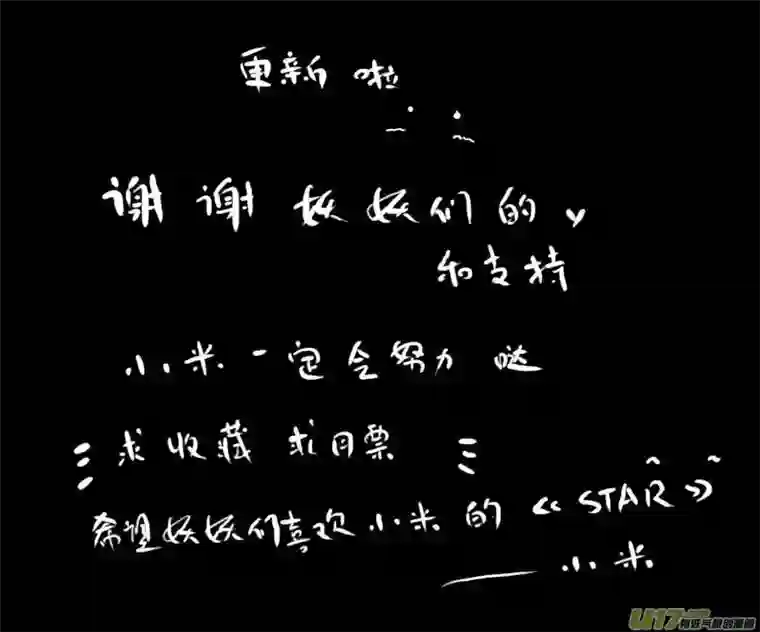 更新啦
谢谢妖妖们的
和支持
小米一定会努力哒
求收藏 求月票
希望妖妖们喜欢小米的《STAR》
——小米
U17